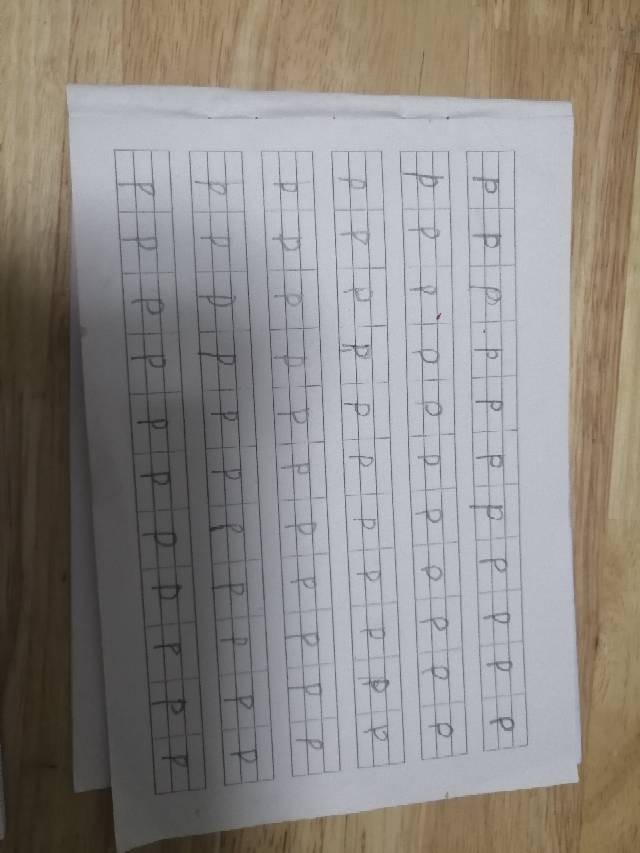 p p p p p p p p p p p
p p p p p p p p p p p
p p p p p p p p p p p
p p p p p p p p p p p
p p p p p p p p p p p
p p p p p p p p p p p